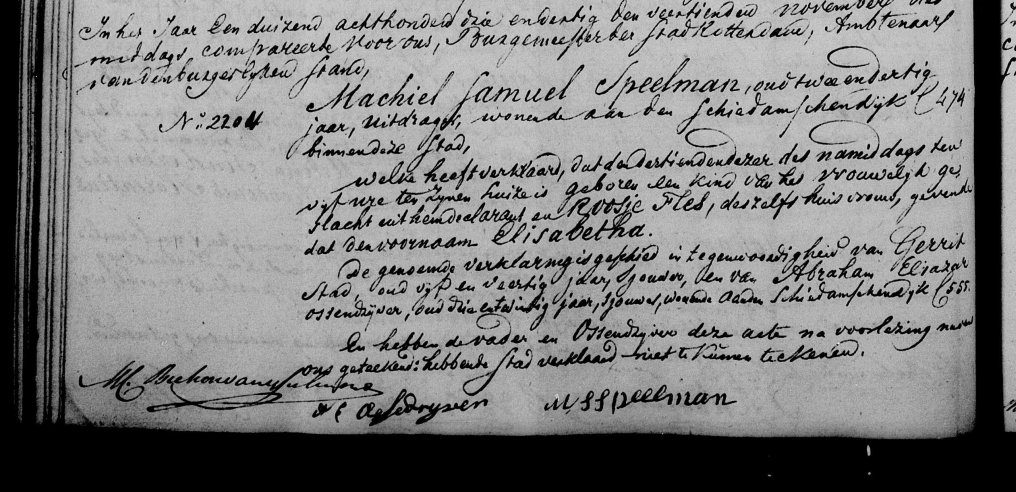 In het Jaar Een duizend achthonderd drie en dertig den veertienden november des
middags compareerde Voor ons, Burgemeester der Stad Rotterdam, Ambtenaar
van den burgerlyken Stand,
Machiel Samuel Speelman, oud twee en dertig
No. 2204 jaar, uitdrager, wonende aan den Schiedamschendijk (474
binnen deze Stad,
welke heeft verklaard, dat den dertienden dezer des namiddags ten
vijf ure ten zynen huize is geboren een kind van het vrouwelijk ge
slacht uit hem declarant en Roosje Fles, deszelfs huisvrouw, gevende
dat den voornaam Elisabetha.
De genoemde verklaring is geschied in tegenwoordigheid van Gerrit
Stad, oud vijf en veertig jaar, en van Abraham Eliazar
Ossendrijver, oud drie en twintig jaar, sjouwer, wonende aan den Schiedamschendijk (555.
En hebben de vader en Ossendrijver deze acte na voorlezing nevens
ons geteekend: hebbende Stad verklaard niet te kunnen teekenen.
M.
Ossedryver M S Speelman